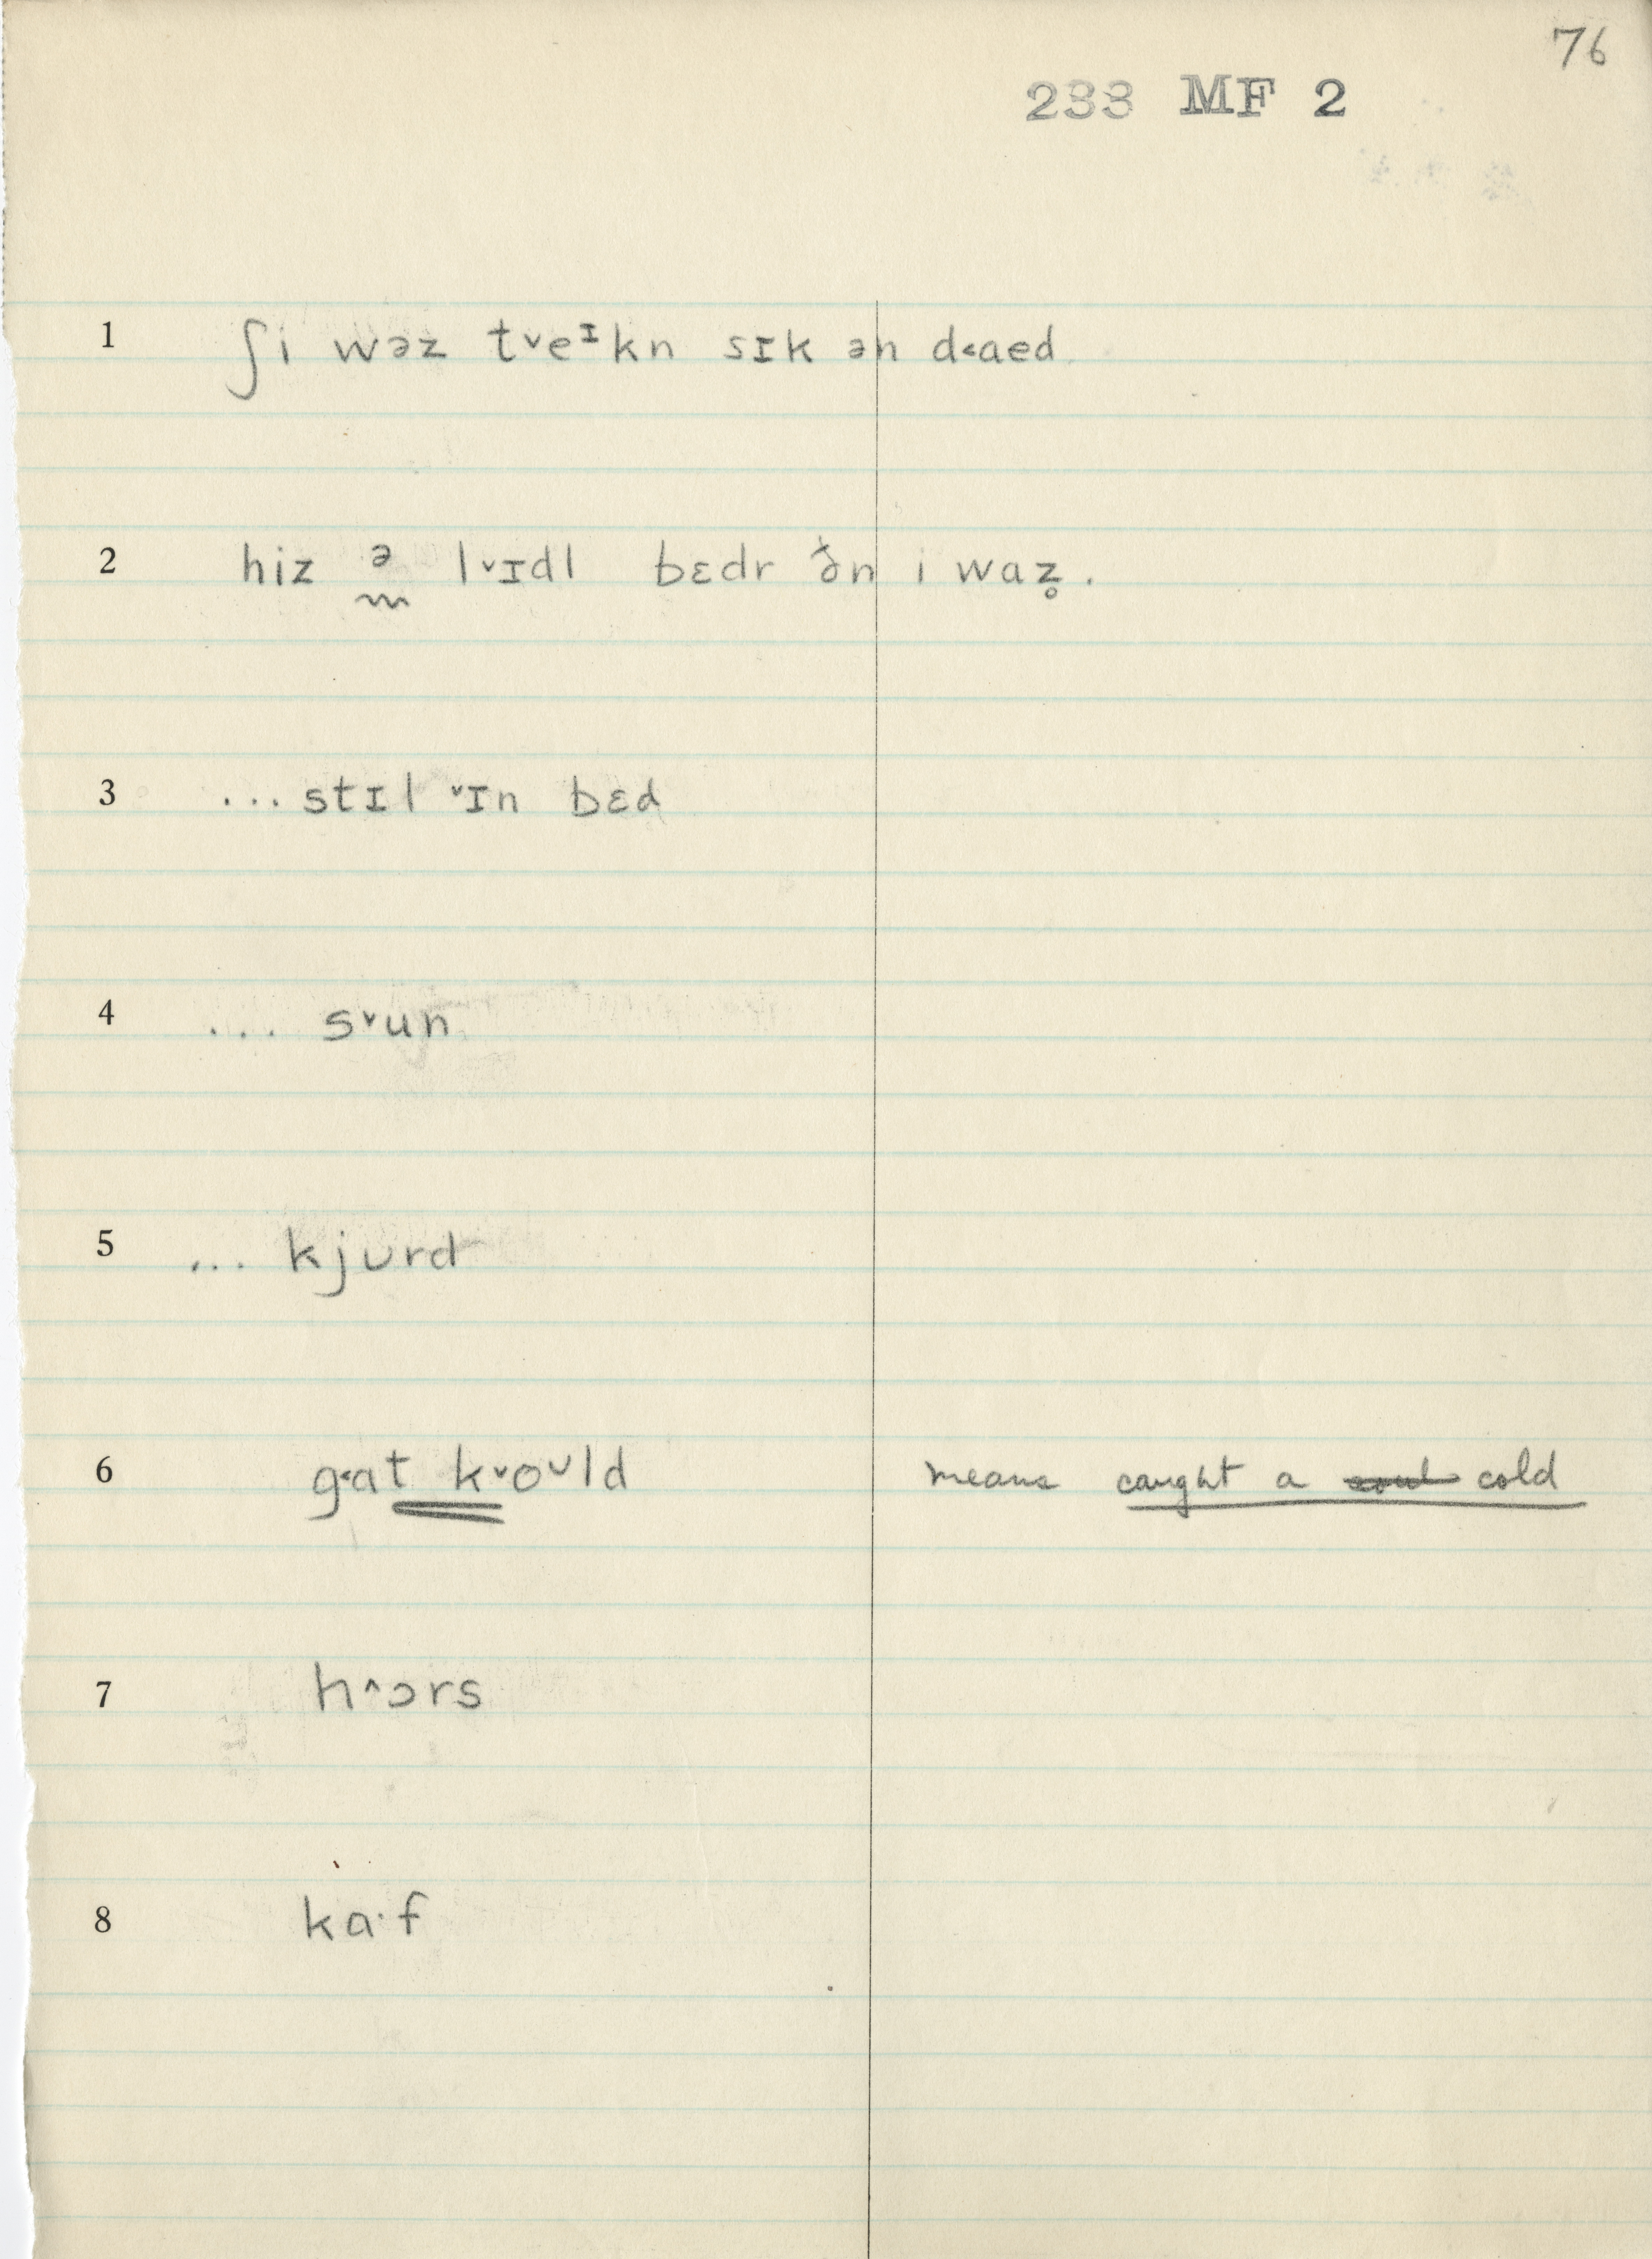 76
233 MF 2
1 ʃi wəz t˅eᶦkn sɪk ən d˂aed
2 hiz ə l˅ɪdl bɛdr ðn i waz̥ .
3 ... stɪl ˅ɪn bɛd
4 ... s˅un
5 ... kjʊrd
6 g˂at k˅oᶷld means caught a cold
7 h˄ɔrs
8 ka·f